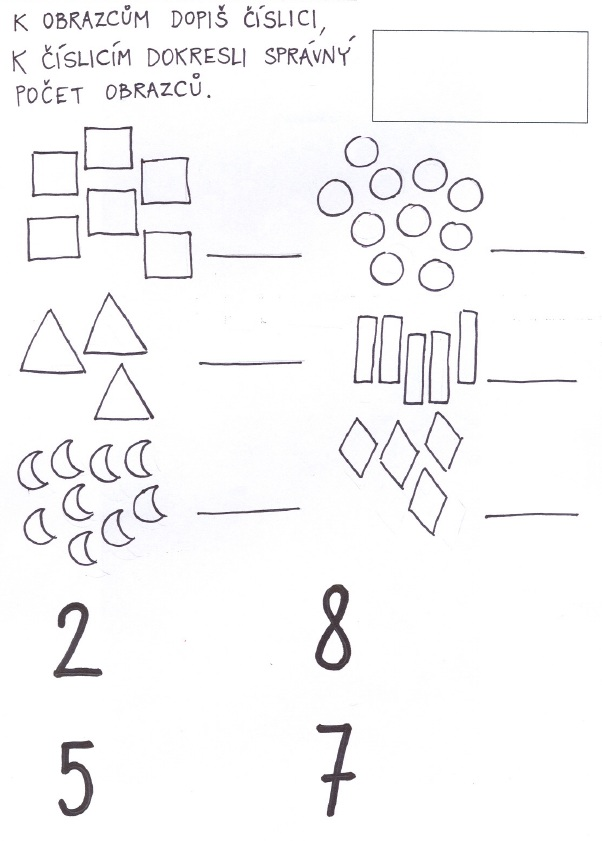 K OBRAZCŮM DOPIŠ ČÍSLICI,
K ČÍSLICÍM DOKRESLI SPRÁVNÝ
POČET OBRAZCŮ.
2 8
5 7